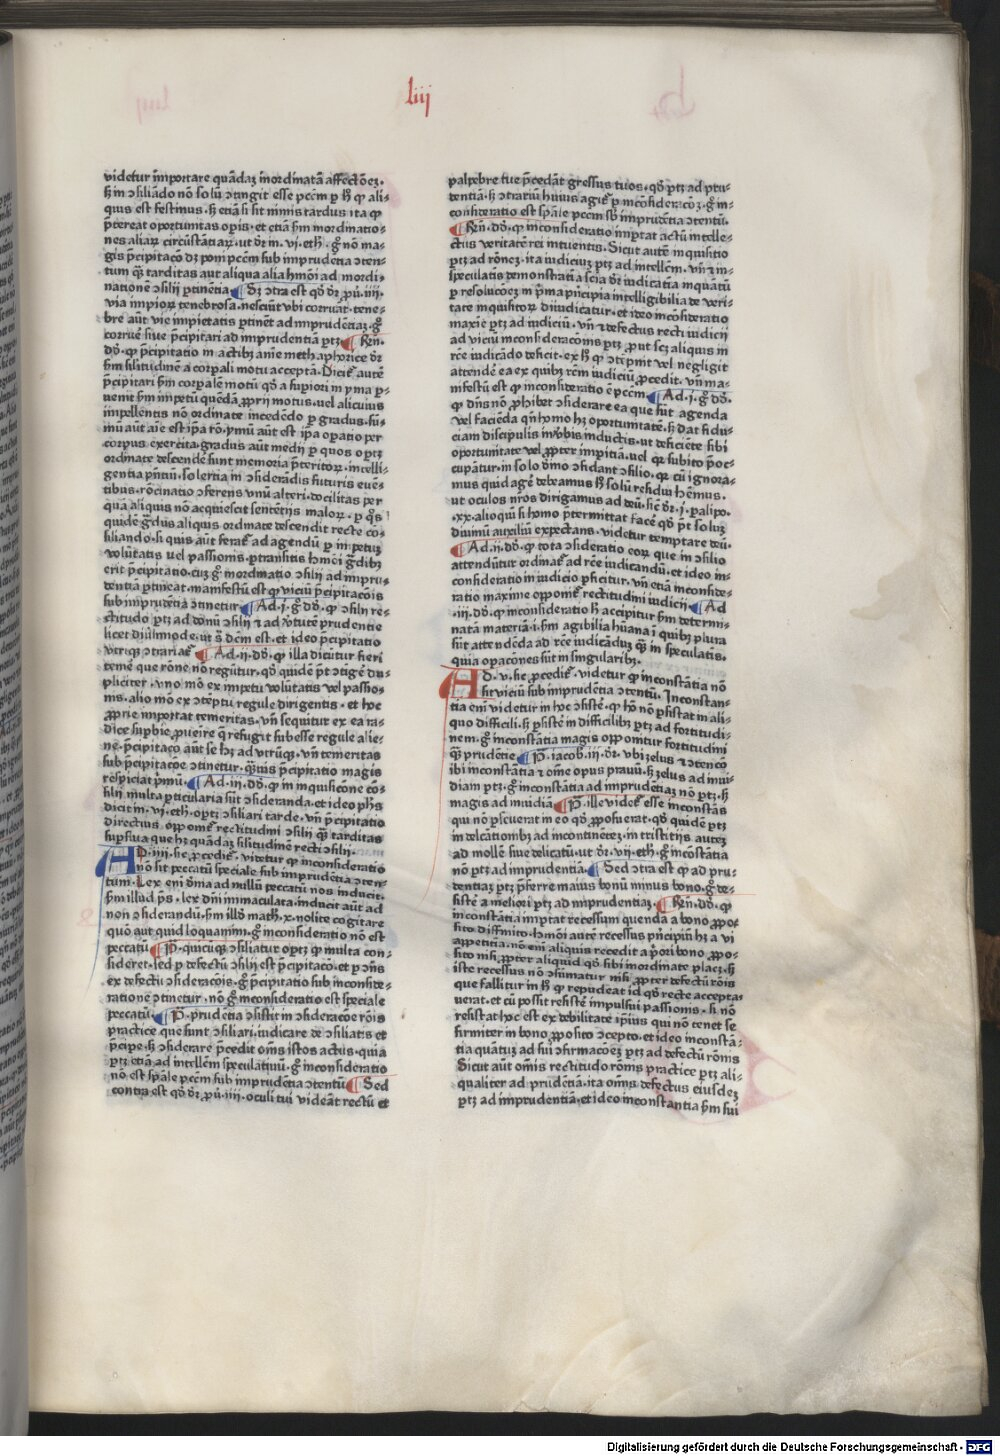 liij
videtur importare quādaʒ inordinatā affectōeʒ.
quis est festinus. ꝫ etiā si sit nimis tardus ita ꝙ
p̄tereat oportunitas opis. et etiā ẜm inordinatio-
nes aliaꝝ circūstātiaꝝ. ut dꝛ in .vi. eth. gͦ nō ma-
gis p̄cipitacō dꝫ poni pccm̄ sub imprudētia ↄten-
tum qꝫ̄ tarditas aut aliqua alia hmōi ad inordi-
nationē ↄsilij ꝑtinētia ¶ Sꝫ ↄtra est qd̓ dꝛ ꝓū.iiij.
via impioꝝ tenebrosa. nesciūt vbi corruāt. tene-
bre aūt vie impietatis ꝑtinēt ad imprudētiaʒ. gͦ
corruē siue p̄cipitari ad imprudētiam ꝑtꝫ ¶ Rn̄.
dd̓. ꝙ p̄cipitatio in actibꝫ aīe methaphorice dꝛ
ẜm silitudinē a corpali motu acceptā. Dicit̉ autē
p̄cipitari ẜm corpalē motū qd̓ a supiori in yma ꝑ-
uenit ẜm impetū quēdā ꝓprij motus. uel alicuius
impellentis nō ordinate incedēdo ꝑ gradus. sū-
mū aūt aīe est ipa rō. ymū aūt est ipa opatio per
corpus exercita. gradus aūt medij ꝑ quos optꝫ
ordinate descendē sunt memoria p̄teritoꝝ. intelli-
gentia p̄ntiū. solertia in ↄsiderādis futuris euē-
tibus. rōcinatio ↄferens vnū alteri. docilitas per
quā aliquis nō acquiescit sentētijs maioꝝ. ꝑ qͦs
quidē gͣdus aliquis ordinate descendit recte cō-
siliando. si quis aūt ferat̉ ad agendū ꝑ impetuʒ
volūtatis uel passionis. ptransitis hmōi gͣdibꝫ
erit p̄cipitatio. cuꝫ gͦ inordinatio ↄsilij ad impru-
dentiā ꝑtineat. manifestū est ꝙ viciū p̄cipitacōis
sub imprudētia ↄtinetur ¶ Ad .j. gͦ dd̓. ꝙ ↄsilij re-
ctitudo ꝑtꝫ ad donū ↄsilij ⁊ ad v̓tutē prudentie
licet diūsimode. ut sͣ dcm̄ est. et ideo p̄cipitatio
vtriqꝫ ↄtrariat̉ ¶ Ad .ij. dd̓. ꝙ illa dicūtur fieri
temē que rōne nō regūtur. qd̓ quidē p̄t ↄtigē du-
pliciter. vno mō ex impetu volūtatis vel passio-
nis. alio mō ex ↄteptu regule dirigentis. et hoc
ꝓprie importat temeritas. vn̄ sequitur ex ea ra-
dice supbie ꝓueire q̄ refugit subesse regule alie-
ne. p̄cipitacō aūt se hꝫ ad vtrūqꝫ. vn̄ temeritas
sub p̄cipitacōe ↄtinetur. qͣuis p̄cipitatio magis
respiciat p̄mū. ¶ Ad .iij. dd̓. ꝙ in inquisicōne cō-
silij multa ꝑticularia sūt ↄsideranda. et ideo phs
dicit in .vi. eth. optꝫ ↄsiliari tarde. vn̄ p̄cipitatio
directius oppoīt̉ rectitudini ↄsilij qꝫ̄ tarditas
supflua que hꝫ quādaʒ silitudinē recti ↄsilij.
AD .iiij. sic ꝓcedit̉. videtur ꝙ inconsideratio
nō sit peccatū speciale sub imprudētia ↄten-
tum. Lex eni dīna ad nullū peccatū nos inducit.
ẜm illud ps. lex dnī immaculata. inducit aūt ad
non ↄsiderandū. ẜm illd̓ math .x. nolite cogitare
quō aut quid loquamini. gͦ inconsideratio nō est
peccatū ¶ P̄. quicūqꝫ ↄsiliatur optꝫ ꝙ multa con-
sideret. sed ꝑ defectū ↄsilij est p̄cipitacō. et ꝑ ↄn̄s
ex defectu ↄsideracōis. gͦ p̄cipitatio sub inconside-
ratione ↄtinetur. nō gͦ inconsideratio est speciale
peccatū ¶ P̄. prudētia ↄsistit in ↄsideracōe rōis
practice que sunt ↄsiliari. iudicare de ↄsiliatis et
p̄cipe. ꝫ ↄsiderare p̄cedit om̄s istos actus. quia
ꝑtꝫ etiā ad intellēm speculatiuū. gͦ inconsideratio
nō est spāle pccm̄ sub imprudētia ↄtentū ¶ Sed
contra est qd̓ dꝛ ꝓū.iiij. oculi tui videāt rectū et
palpebre tue p̄cedāt gressus tuos. qd̓ ꝑtꝫ ad pru-
dentiā. ꝫ ↄtrariū huius agit̉ ꝑ inconsideracōꝫ. gͦ in-
consideratio est spāle pccm̄ sub imprudētia ↄtentū.
¶ Rn̄. dd̓. ꝙ inconsideratio importat actū intelle-
ctus veritatē rei intuentis. Sicut autē inquisitio
ꝑtꝫ ad rōneʒ. ita iudiciuʒ ꝑtꝫ ad intellēm. vn̄ ⁊ in
speculatis demonstratiā sciā dꝛ iudicatiā inquātū
ꝑ resolucōeʒ in p̄ma p̄ncipia intelligibilia de veri-
tate inquisitoꝝ diiudicatur. et ideo inconsideratio
maxie ꝑtꝫ ad iudiciū. vn̄ ⁊ defectus recti iudicij
ad viciū inconsideracōnis ꝑtꝫ prout scꝫ aliquis in
rcē iudicādo deficit. ex hͦ ꝙ ↄtēpnit vel negligit
attendē ea ex quibꝫ rēm iudiciū ꝓcedit. vn̄ ma-
nifestū est ꝙ inconsideratio ē pccm̄ ¶ Ad .j. gͦ dd̓.
ꝙ dn̄s nō ꝓhibet ↄsiderare ea que sūt agenda
vel faciēda qn̄ homo hꝫ oportunitatē. ꝫ dat fidu-
ciam discipulis in v̓bis inductis. ut deficiēte sibi
oportunitate vel ꝓpter impitiā. uel qꝛ subito p̄oc-
cupātur. in solo dīno ↄfidant ↄsilio. qꝛ cū ignora-
mus quid agē debeamus hͦ solū residui hēmus.
ut oculos nr̄os dirigamus ad deū. sic dꝛ .j. palipo.
.xx. alioqui si homo p̄termittat facē qd̓ p̄t soluʒ
diuinū auxiliū expectans. videtur temptare deū.
¶ Ad .ij. dd̓. ꝙ tota ↄsideratio eoꝝ que in ↄsilio
attendūtur ordinat̉ ad rcē iudicandū. et ideo in-
consideratio in iudicio ꝑficitur. vn̄ etiā inconside-
ratio maxime oppoīt̉ rectitudini iudicij ¶ Ad
.iij. dd̓. ꝙ inconsideratio hͥ accipitur ẜm determi-
natā materiā .i. ẜm agibilia hūana ī quibꝫ plura
sūt attendēda ad rcē iudicādūꝫ qꝫ̄ in speculatis.
quia opacōnes sūt in singularibꝫ.
AD .v. sic ꝓcedit̉. videtur ꝙ inconstātia nō
sit viciū sub imprudētia ↄtentū. Inconstan-
tia enī videtur in hoc ↄsistē. ꝙ hō nō ꝑsistat in ali-
quo difficili. ꝫ ꝑsistē in difficilibꝫ ꝑtꝫ ad fortitudi-
nem. gͦ inconstātia magis opponitur fortitudini
qꝫ̄ prudētie ¶ P̄. iacob .iij. dꝛ. vbi zelus ⁊ ↄtencō
ibi inconstātia ⁊ om̄e opus prauū. ꝫ zelus ad inui-
diam ꝑtꝫ. gͦ inconstātia ad imprudētiaʒ nō ꝑtꝫ. ꝫ
magis ad inuidiā ¶ P̄. ille videt̉ esse inconstās
qui nō ꝑseuerat in eo qd̓ ꝓposuerat. qd̓ quidē ꝑtꝫ
in delcātionibꝫ ad incontinētēʒ. in tristitijs autēʒ
ad mollē siue delicatū. ut dꝛ .vij. eth. gͦ incōstātia
nō ꝑtꝫ ad imprudentiā. ¶ Sed ↄtra est ꝙ ad pru-
dentiaʒ ꝑtꝫ p̄ferre maius bonū minus bono. gͦ de-
sistē a meliori ꝑtꝫ ad imprudentiaʒ. ¶ Rn̄. dd̓. ꝙ
inconstātia importat recessum quendā a bono ꝓpo-
sito diffinito. hmōi autē recessus p̄ncipiū hꝫ a vi
appetitiā. nō enī aliquis recedit a p̄ori bono ꝓpo-
sito nisi ꝓpter aliquid qd̓ sibi inordinate placꝫ. ꝫ
iste recessus nō ↄsumatur nisi ꝓpter defectū rōis
que fallitur in hͦ ꝙ repudeat id qd̓ recte accepta-
uerat. et cū possit resistē impulsui passionis. si nō
resistat hoc est ex debilitate ipius qui nō tenet se
firmiter in bono ꝓposito ↄcepto. et ideo inconstā-
tia quātuʒ ad sui ↄsirmacōeʒ ꝑtꝫ ad defectū rōnis
Sicut aūt om̄is rectitudo rōnis practice ꝑtꝫ ali-
qualiter ad prudētiā. ita om̄is defectus eiusdeʒ
ꝑtꝫ ad imprudentiā. et ideo inconstantia ẜm sui
Digitalisierung gefördert durch die Deutsche Forschungsgemeinschaft - DFG